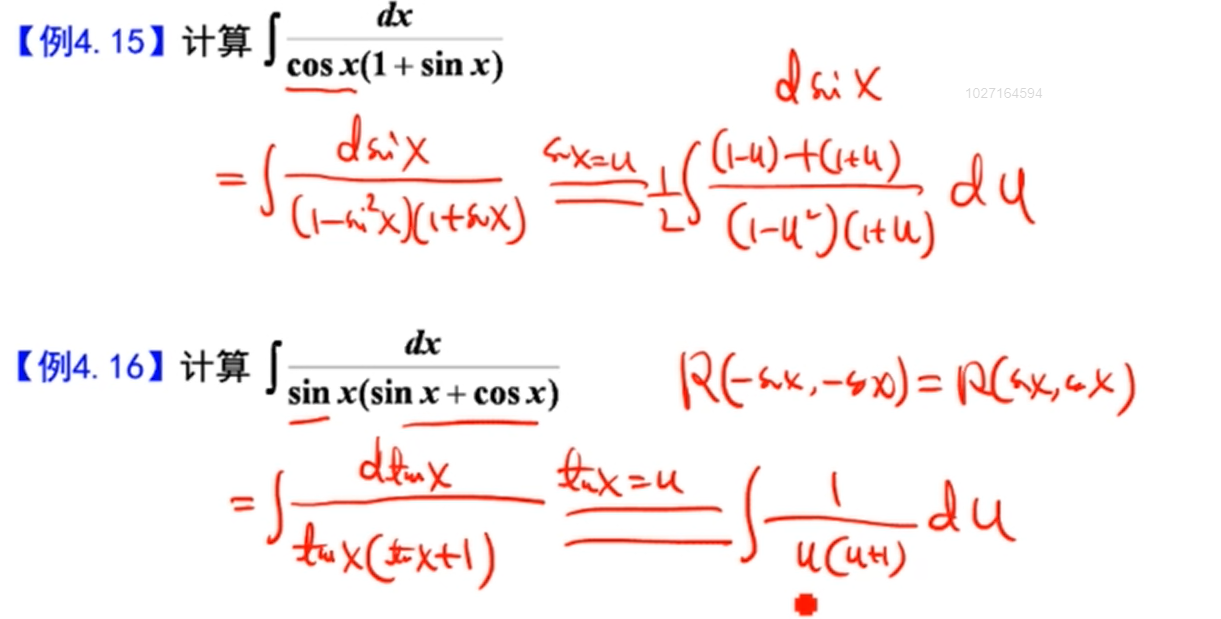 【例4.15】计算 ∫ dx / cos x(1 + sin x)
d sin x
1027164594
= ∫ d sin x / (1-sin²x)(1+sin x) sin x=u 1/2 ∫ (1-u)+(1+u) / (1-u²)(1+u) du
【例4.16】计算 ∫ dx / sin x(sin x + cos x)
R(-sin x, -cos x) = R(sin x, cos x)
= ∫ d tan x / tan x(tan x+1) tan x = u ∫ 1 / u(u+1) du